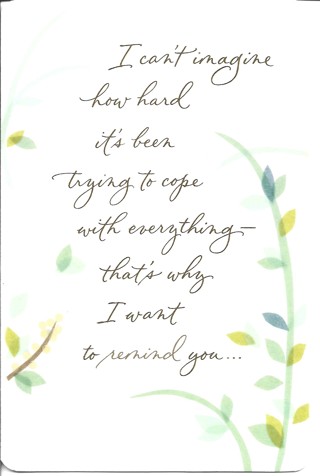 I can't imagine
how hard
it's been
trying to cope
with everything—
that's why
I want
to remind you...